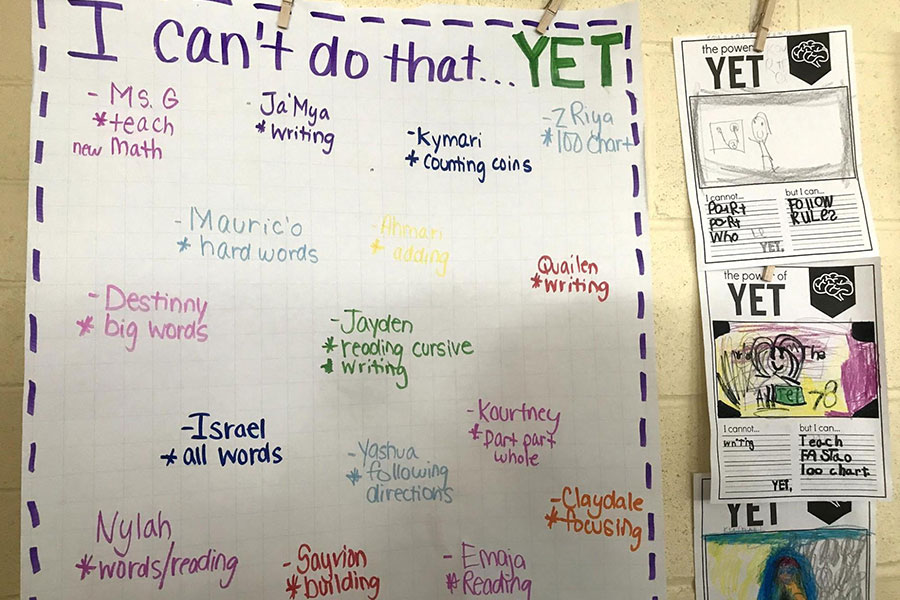 I can't do that... YET
- Ms. G
*teach
new math
- Ja'Mya
*writing
-Kymari
* counting coins
-ZRiya
*100 chart
- Mauric'o
* hard words
* adding
Quailen
*writing
- Destinny
* big words
-Jayden
*reading cursive
* writing
-Israel
* all words
-Yashua
*following
directions
-Kourtney
*part part
whole
-Claydale
*focusing
Nylah
*words/reading
-Sayvion
*building
- Emaja
*Reading
the power
YET
I cannot...
PaRt
paRt
Who
YET.
but I can...
FOLLOW
RULEZ
the power of
YET
The
78
I cannot...
writing
YET.
but I can...
Teach
100 chart
YET